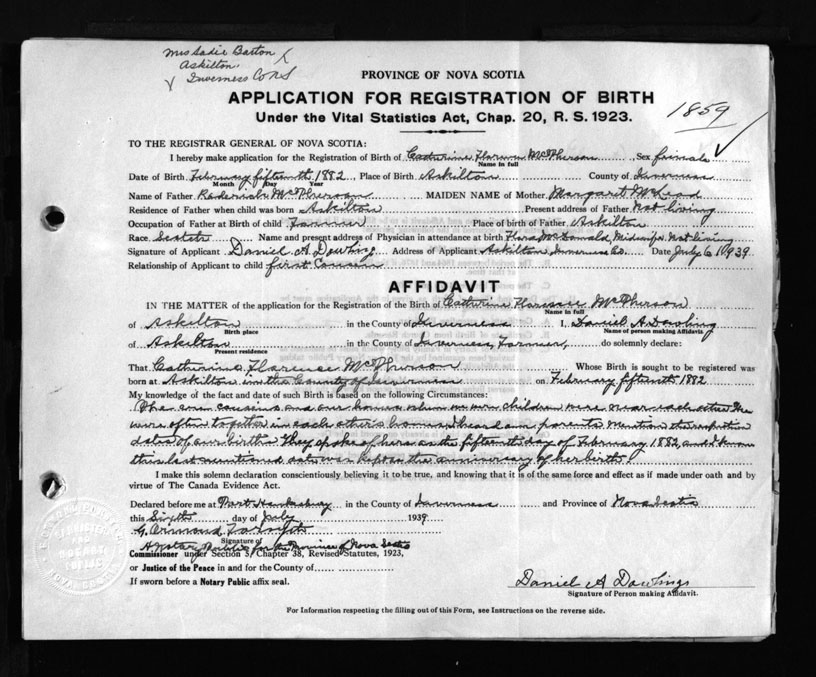 Mrs Sadie Barton
Askilton
Inverness Co NS
PROVINCE OF NOVA SCOTIA
APPLICATION FOR REGISTRATION OF BIRTH
1859
Under the Vital Statistics Act, Chap. 20, R. S. 1923.
TO THE REGISTRAR GENERAL OF NOVA SCOTIA:
I hereby make application for the Registration of Birth of Catherine Florence McPherson Sex female
Name in full
Date of Birth February fifteenth 1882 Place of Birth Askilton County of Inverness
Month Day Year
Name of Father Roderick McPherson MAIDEN NAME of Mother Margaret McLeod
Residence of Father when child was born Askilton Present address of Father Not living
Occupation of Father at Birth of child Farmer Place of birth of Father Askilton
Race Scotch Name and present address of Physician in attendance at birth Flora McDonald, Midwife Not living
Signature of Applicant Daniel A Dowling Address of Applicant Askilton Inverness Co. Date July 6 1939
Relationship of Applicant to child first Cousin
AFFIDAVIT
IN THE MATTER of the application for the Registration of the Birth of Catherine Florence McPherson
Name in full
of Askilton in the County of Inverness I, Daniel A Dowling
Birth place Name of person making Affidavit.
of Askilton in the County of Inverness, Farmer, do solemnly declare:
Present residence
That Catherine Florence McPherson Whose Birth is sought to be registered was
born at Askilton in the County of Inverness on February fifteenth 1882
My knowledge of the fact and date of such Birth is based on the following Circumstances:
cousins and our homes when we were children were near each other We
were often together in each other's homes I heard our parents mention the respective
dates of our births They spoke of hers as the fifteenth day of February 1882, and I know
this last mentioned date was kept as the anniversary of her birth.
I make this solemn declaration conscientiously believing it to be true, and knowing that it is of the same force and effect as if made under oath and by
virtue of The Canada Evidence Act.
Declared before me at Port Hawkesbury in the County of Inverness and Province of Nova Scotia
this Sixth day of July 1939
Signature of
A Notary Public for the Province of Nova Scotia
Commissioner under Section 5, Chapter 38, Revised Statutes, 1923,
or Justice of the Peace in and for the County of
If sworn before a Notary Public affix seal.
Daniel A Dowling
Signature of Person making Affidavit.
For Information respecting the filling out of this Form, see Instructions on the reverse side.